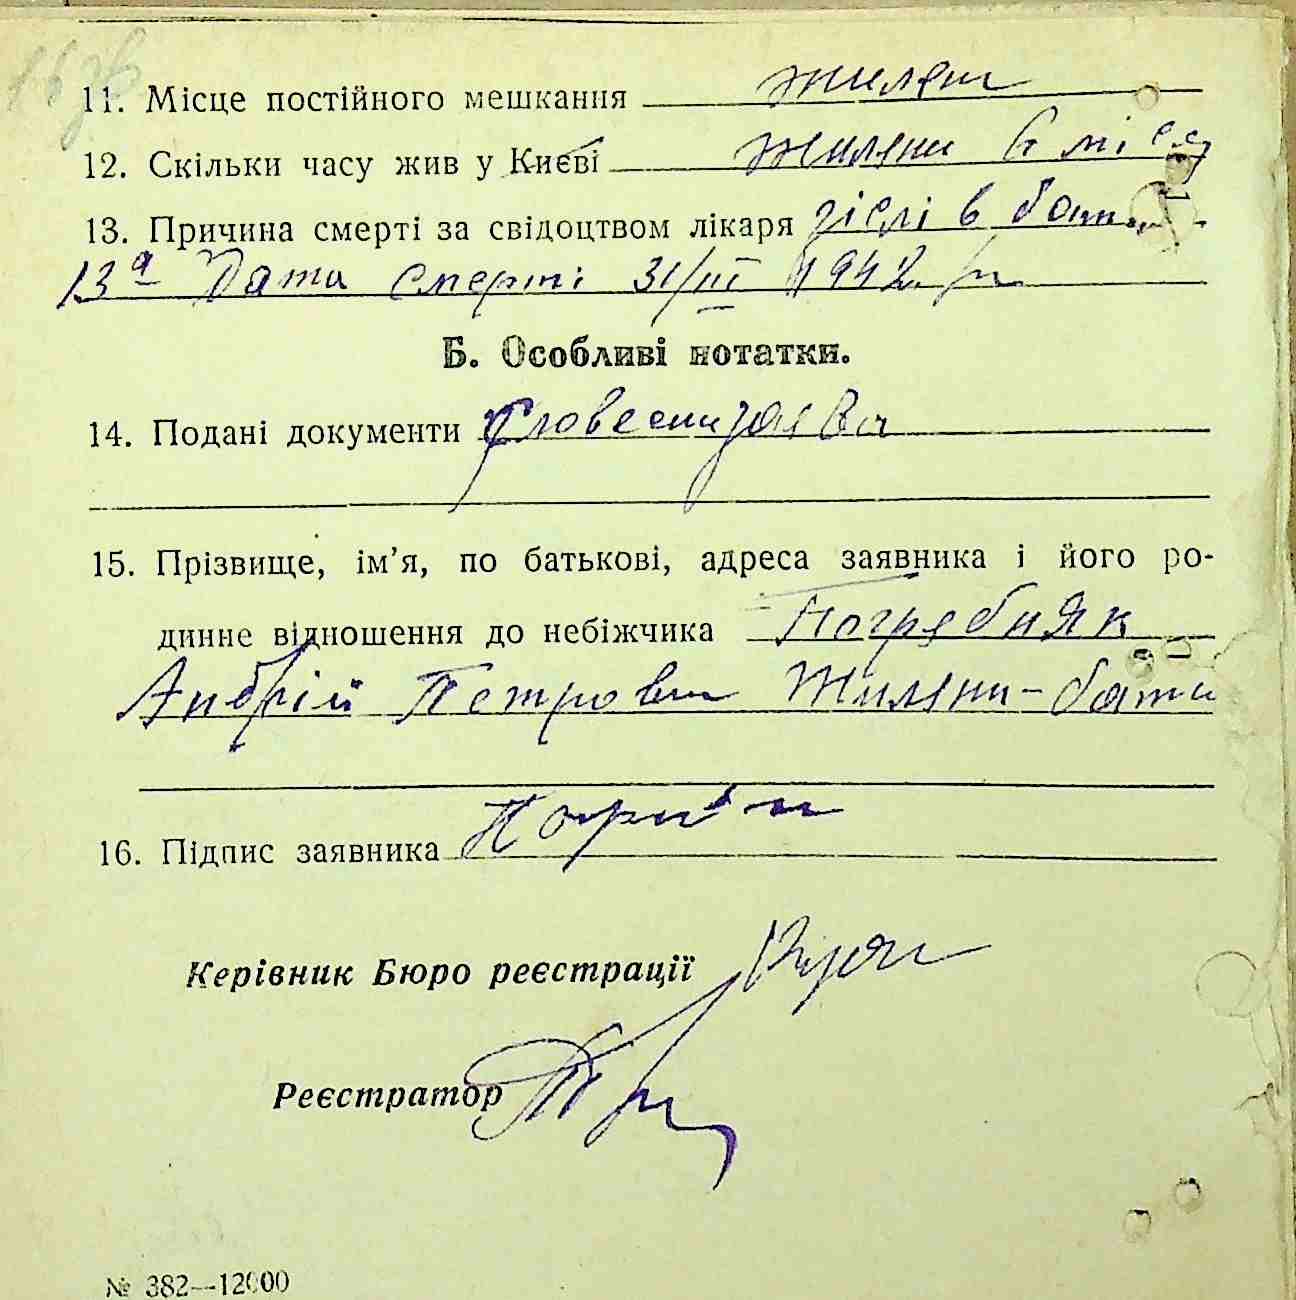 11. Місце постійного мешкання Жиляни
12. Скільки часу жив у Києві Жиляни 6 міс
13. Причина смерті за свідоцтвом лікаря в
13а Дата смерті 31/III 1942 р
Б. Особливі нотатки.
14. Подані документи словесни заява
15. Прізвище, ім'я, по батькові, адреса заявника і його ро-
динне відношення до небіжчика Погребняк
Андрій Петрович Жиляни - батько
16. Підпис заявника
Керівник Бюро реєстрації
Реєстратор
№ 382—12000